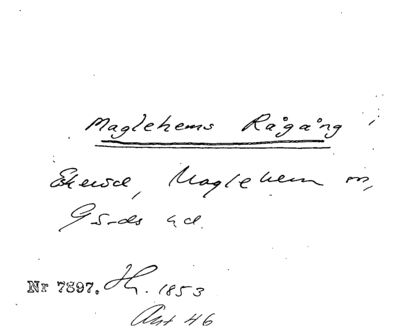 Maglehems Rågång
Ekeröd, Maglehem m,
Gärds hd.
Nr 7897. Hh. 1853
Ant 46